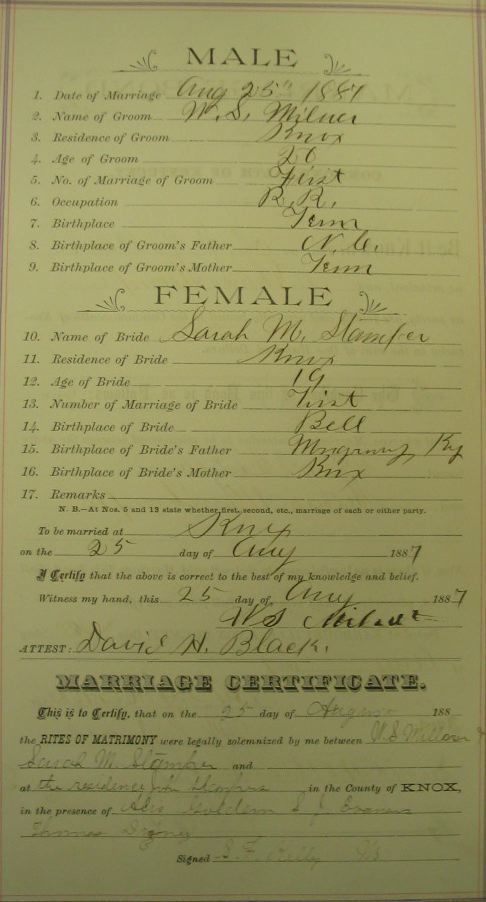 MALE
1. Date of Marriage Aug 25" 1887
2. Name of Groom W. S. Milner
3. Residence of Groom Knox
4. Age of Groom 26
5. No. of Marriage of Groom First
6. Occupation R. R.
7. Birthplace Tenn
8. Birthplace of Groom's Father N. C.
9. Birthplace of Groom's Mother Tenn
FEMALE
10. Name of Bride Sarah M. Stamper
11. Residence of Bride Knox
12. Age of Bride 19
13. Number of Marriage of Bride First
14. Birthplace of Bride Bell
15. Birthplace of Bride's Father Ky
16. Birthplace of Bride's Mother Knox
17. Remarks
N. B.—At Nos. 5 and 13 state whether first, second, etc., marriage of each or either party.
To be married at Knox
on the 25 day of Aug 1887
I Certify that the above is correct to the best of my knowledge and belief.
Witness my hand, this 25 day of Aug 1887
W S
ATTEST: David H. Black.
MARRIAGE CERTIFICATE.
This is to Certify, that on the 25 day of August 188
the RITES OF MATRIMONY were legally solemnized by me between W. S.
Sarah M. Stamper and
at the residence John Stampers in the County of KNOX,
in the presence of Goldem S. J.
Thomas
Signed S. F. Kelly